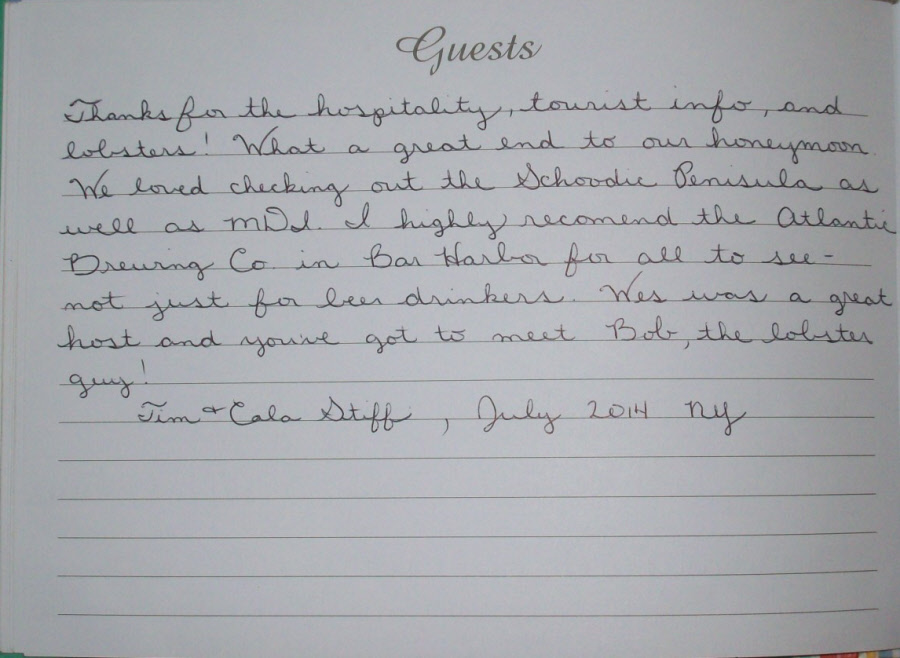 Guests
Thanks for the hospitality, tourist info, and
lobsters! What a great end to our honeymoon.
We loved checking out the Schoodic Penisula as
well as MDI. I highly recomend the Atlantic
Brewing Co. in Bar Harbor for all to see -
not just for beer drinkers. Wes was a great
host and you've got to meet Bob, the lobster
guy!
Tim + Cala Stiff, July 2014 NY